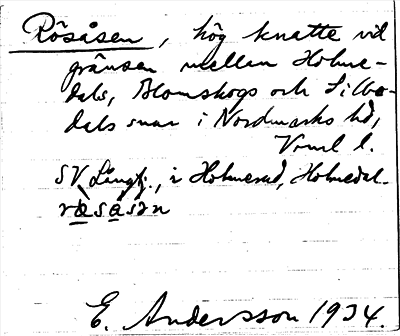 Rösåsen, hög knatte vid
gränsen mellan Holme-
dals, Blomskogs och Sillbo-
dals snar i Nordmarks hd,
Vrml l.
SV Långtj., i Holmerud, Holmedal.
E. Andersson 1934.